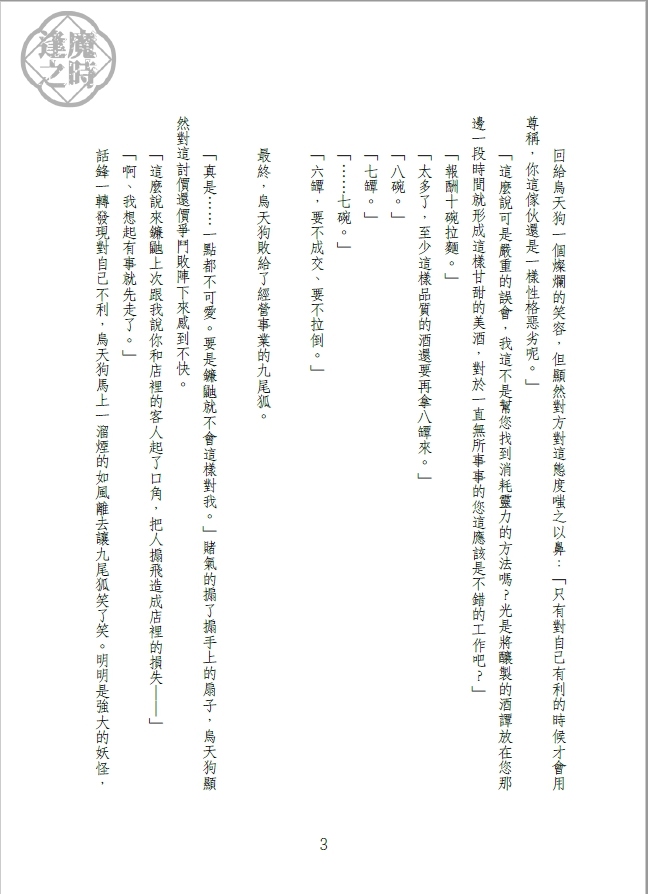 逢魔
之時
回給烏天狗一個燦爛的笑容，但顯然對方對這態度嗤之以鼻：「只有對自己有利的時候才會用
尊稱，你這傢伙還是一樣性格惡劣呢。」
「這麼說可是嚴重的誤會，我這不是幫您找到消耗靈力的方法嗎？光是將釀製的酒譚放在您那
邊一段時間就形成這樣甘甜的美酒，對於一直無所事事的您這應該是不錯的工作吧？」
「報酬十碗拉麵。」
「太多了，至少這樣品質的酒還要再拿八罈來。」
「八碗。」
「七罈。」
「……七碗。」
「六罈，要不成交、要不拉倒。」
最終，烏天狗敗給了經營事業的九尾狐。
「真是……一點都不可愛。要是鐮鼬就不會這樣對我。」賭氣的搧了搧手上的扇子，烏天狗顯
然對這討價還價爭鬥敗陣下來感到不快。
「這麼說來鐮鼬上次跟我說你和店裡的客人起了口角，把人搧飛造成店裡的損失——」
「啊、我想起有事就先走了。」
話鋒一轉發現對自己不利，烏天狗馬上一溜煙的如風離去讓九尾狐笑了笑。明明是強大的妖怪，
3